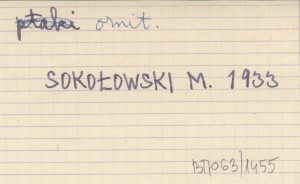 ptaki ornit.
SOKOŁOWSKI M. 1933
BΠ063/1455